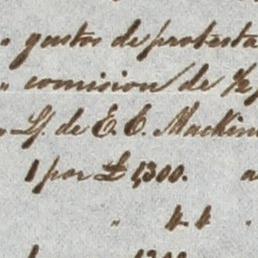 " gastos de protesta
" comision de ½
" Lf. de E. C. Mackin
1 por £ 1,300.
"
1300